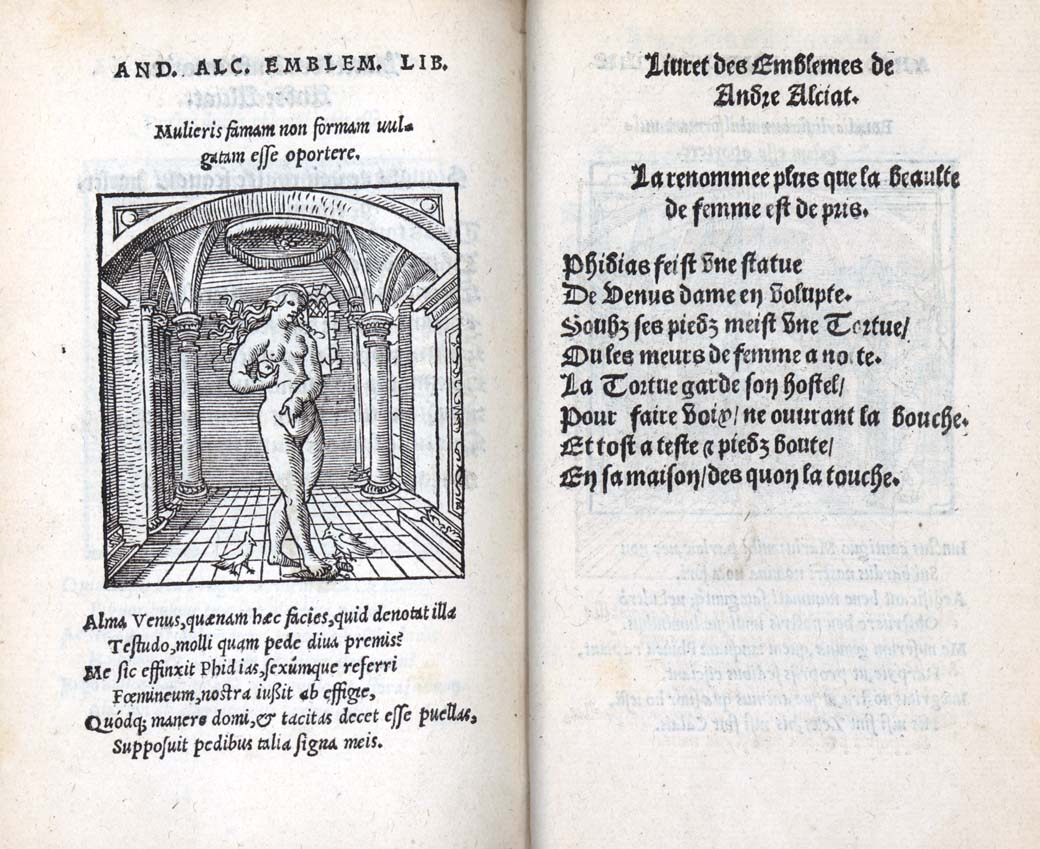 AND. ALC. EMBLEM. LIB.
Mulieris famam non formam uul-
gatam esse oportere.
Alma Venus, quænam hæc facies, quid denotat illa
Testudo, molli quam pede diua premis?
Me sic effinxit Phidias, sexúmque referri
Fœmineum, nostra iußit ab effigie,
Quódq; manere domi, & tacitas decet esse puellas,
Supposuit pedibus talia signa meis.
Liuret des Emblemes de
Andre Alciat.
La renommee plus que la beaulte
de femme est de pris.
Phidias feist vne statue
De Venus dame en volupte.
Soubz ses piedz meist vne Tortue/
Ou les meurs de femme a note.
La Tortue garde son hostel/
Pour faire voix/ ne ouurant la bouche.
Et tost a teste & piedz boute/
En sa maison/ des quon la touche.